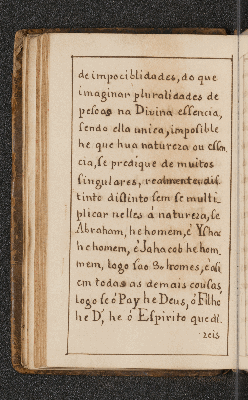 de impociblidades, do que
imaginar pluralidades de
pesoas na Divina essencia,
sendo ella unica, imposible
he que hua natureza ou essen
cia, se predique de muitos
singulares, realmente, dis
tinto distinto sem se multi
plicar nelles á natureza, se
Abraham, he homem, é Yshac
he homem, é Jahacob he hom
mem, logo sao 3 homes, é asi
em todas as demais cousas,
logo se ó Pay he Deus, ó Filho
he D', he ó Espirito que di
zeis